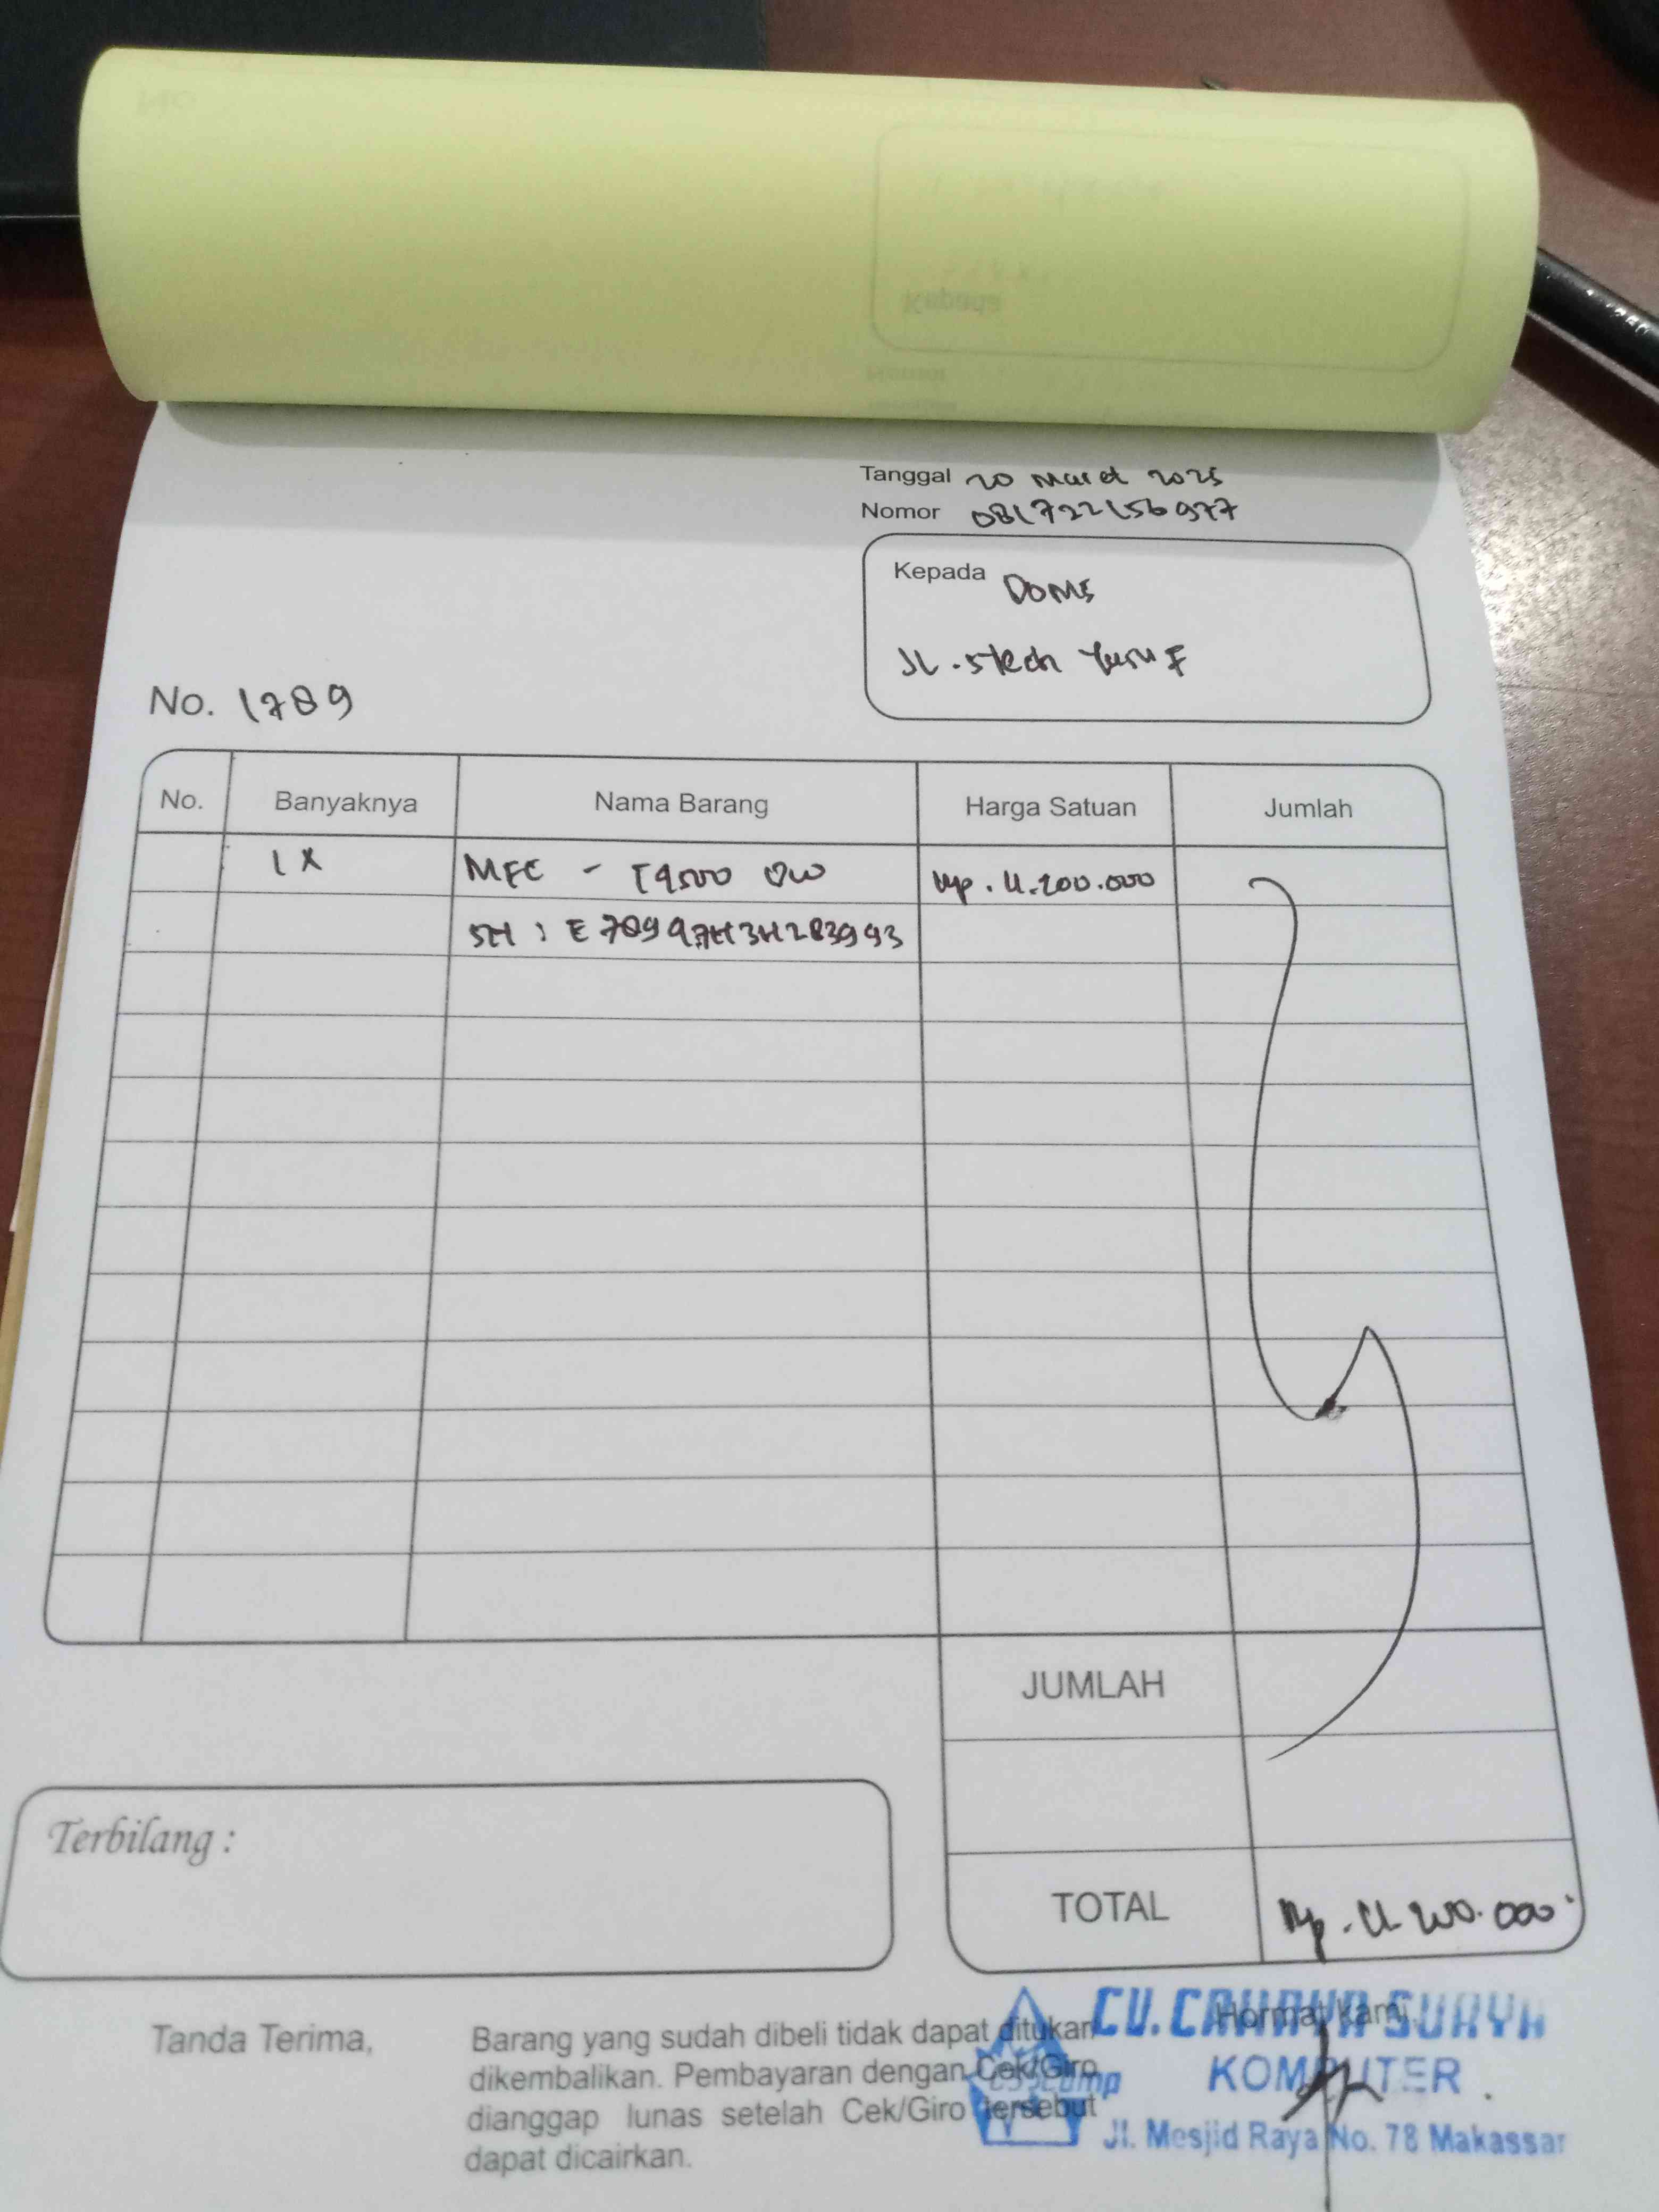 Tanggal 20 Maret 2025
Nomor 081722156977
Kepada DOMS
JL. Stech Yusuf
No. 1789
No. Banyaknya Nama Barang Harga Satuan Jumlah
1 X MFC - T9500 DW Rp. 11.200.000
SN : E78997H3H283993
JUMLAH
Terbilang :
TOTAL Rp. 11.200.000
Tanda Terima,
Barang yang sudah dibeli tidak dapat ditukar
dikembalikan. Pembayaran dengan Cek/Giro
dianggap lunas setelah Cek/Giro tersebut
dapat dicairkan.
Hormat kami,
CV. CAHAYA SURYA
KOMPUTER
Jl. Mesjid Raya No. 78 Makassar